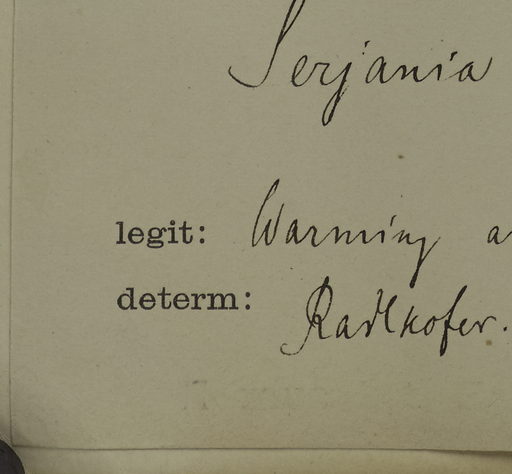 Serjania
legit: Warming
determ: Radlkofer.